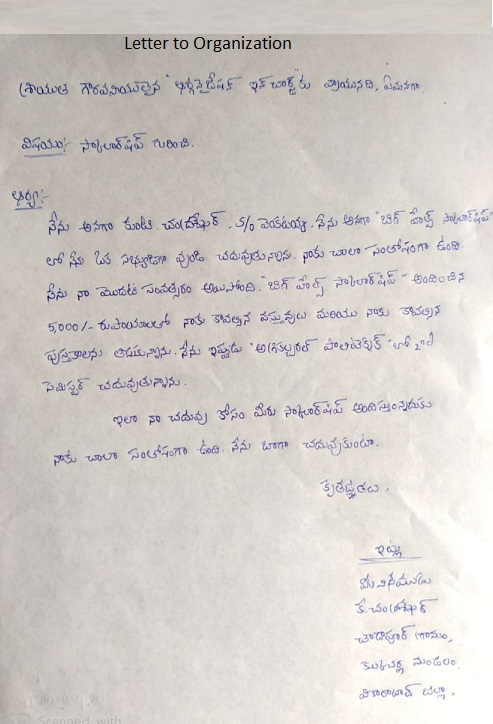 Letter to Organization
శ్రీయుత గౌరవనీయులైన "ఆర్గనైజేషన్ ఇన్ చార్జ్" కు వ్రాయునది, ఏమనగా
విషయం:- స్కాలర్‌షిప్ గురించి.
ఆర్యా:-
నేను అనగా కుంటి. చంద్రశేఖర్. S/o వెంకటయ్య. నేను అనగా "బిగ్ హెల్ప్ స్కాలర్‌షిప్"
లో నేను ఒక సభ్యుడిగా వుండి చదువుతున్నాను. నాకు చాలా సంతోషంగా ఉంది.
నేను నా మొదటి సంవత్సరం అయిపోంది. "బిగ్ హెల్ప్ స్కాలర్‌షిప్" అందించిన
5000/- రుపాయలతో నాకు కావల్సిన వస్తువులు మరియు నాకు కావల్సిన
పుస్తకాలను తీసుకున్నాను. నేను ఇప్పుడు "అగ్రికల్చరల్ పాలిటెక్నిక్" లో
సెమిస్టర్ చదువుతున్నాను.
ఇలా నా చదువు కోసం మీరు స్కాలర్‌షిప్ అందిస్తున్నందుకు
నాకు చాలా సంతోషంగా ఉంది. నేను బాగా చదువుకుంటా.
కృతజ్ఞతలు.
ఇట్లు
మీ వినేముడు
కే. చంద్రశేఖర్
గ్రామం,
మండలం,
వికారాబాద్ జిల్లా.
Scanned with